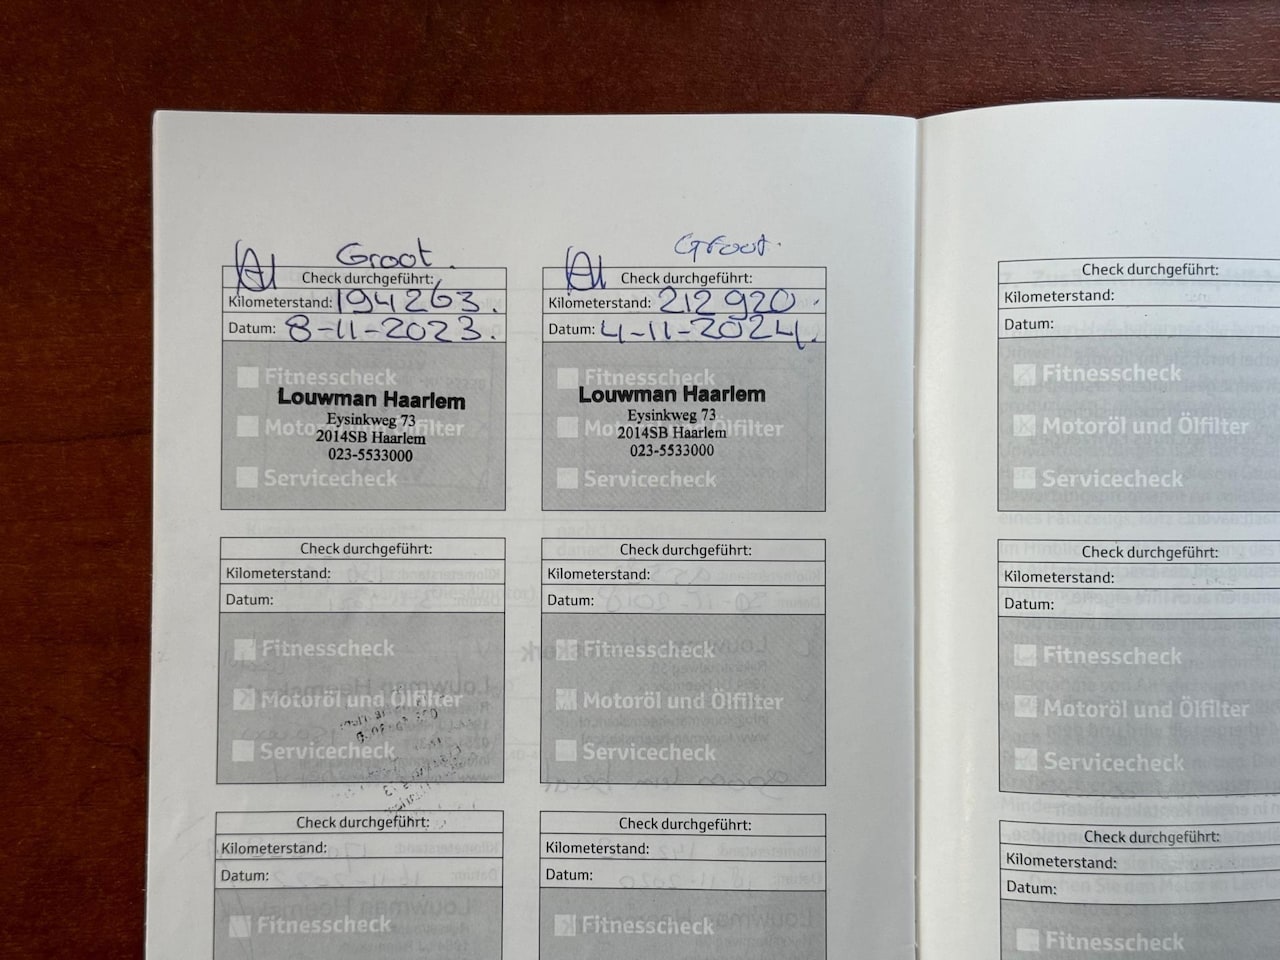 Groot.
Check durchgeführt:
Kilometerstand: 194263.
Datum: 8-11-2023.
Fitnesscheck
Louwman Haarlem
Eysinkweg 73
Motoröl und Ölfilter
2014SB Haarlem
023-5533000
Servicecheck
Groot.
Check durchgeführt:
Kilometerstand: 212920.
Datum: 4-11-2024.
Fitnesscheck
Louwman Haarlem
Eysinkweg 73
Motoröl und Ölfilter
2014SB Haarlem
023-5533000
Servicecheck
Check durchgeführt:
Kilometerstand:
Datum:
Fitnesscheck
Motoröl und Ölfilter
Servicecheck
Check durchgeführt:
Kilometerstand:
Datum:
Fitnesscheck
Motoröl und Ölfilter
Servicecheck
Check durchgeführt:
Kilometerstand:
Datum:
Fitnesscheck
Check durchgeführt:
Kilometerstand:
Datum:
Fitnesscheck
Check durchgeführt:
Kilometerstand:
Datum:
Fitnesscheck
Motoröl und Ölfilter
Servicecheck
Check durchgeführt:
Kilometerstand:
Datum:
Fitnesscheck
Motoröl und Ölfilter
Servicecheck
Check durchgeführt:
Kilometerstand:
Datum:
Fitnesscheck